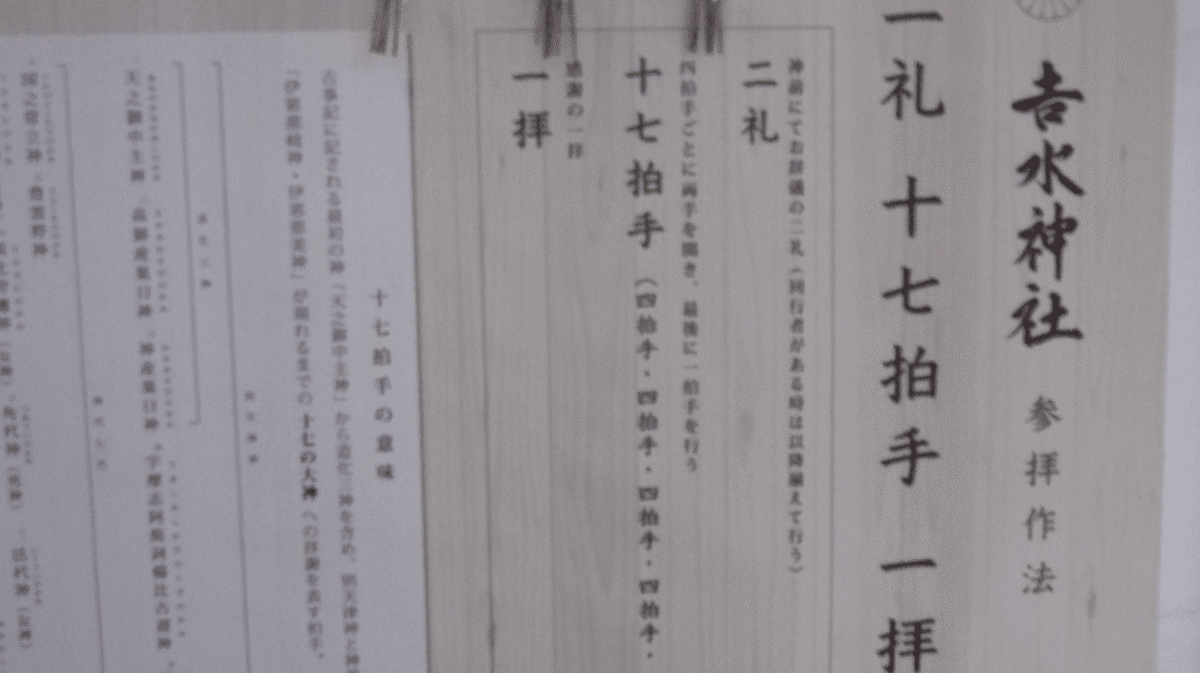 𠮷水神社 参拝作法
一礼 十七拍手 一拝
神前にてお辞儀の二礼（同行者がある時は以降揃えて行う）
二礼
四拍手ごとに両手を開き、最後に一拍手を行う
十七拍手（四拍手・四拍手・四拍手・四拍手・
感謝の一拝
一拝
十七拍手の意味
古事記に記される最初の神「天之御中主神」から造化三神を含め、別天津神と神
「伊邪那岐神・伊邪那美神」が現れるまでの十七の大神への拝謝を表す拍手。
別天津神
造化三神
天之御中主神 高御産巣日神 神産巣日神 宇摩志阿斯訶備比古遅神
神代七代
国之常立神 豊雲野神
角杙神（男神） 活杙神（女神）